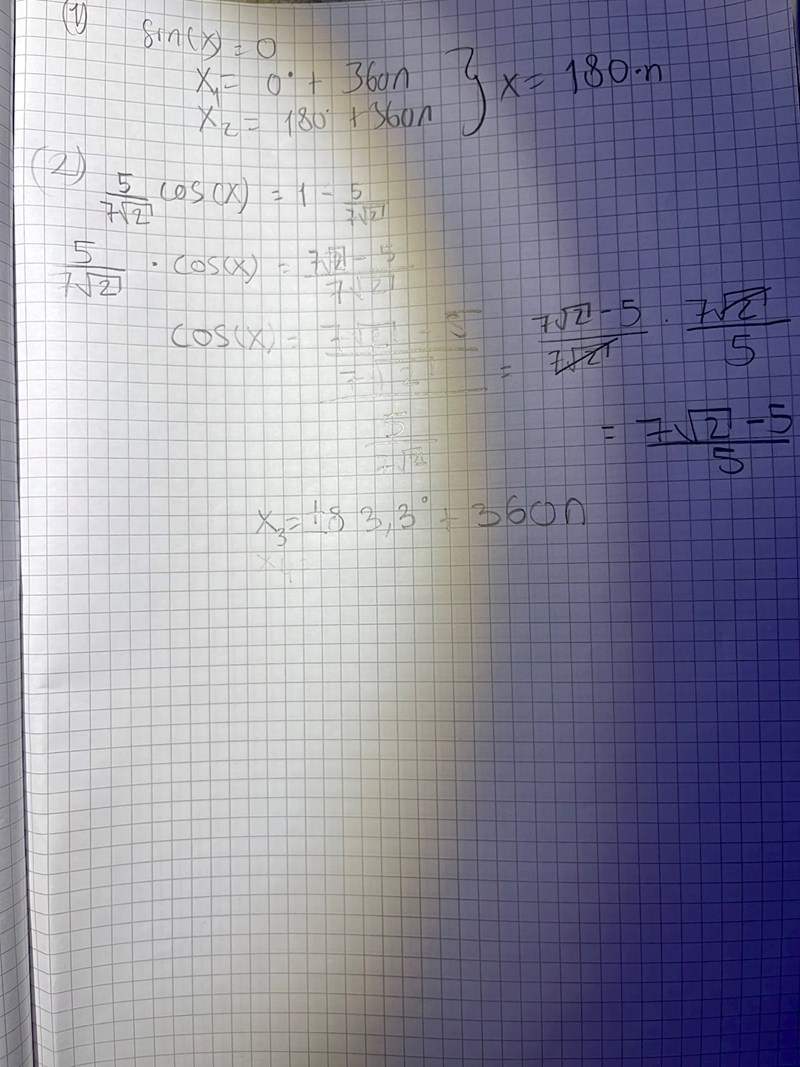 (1)
sin(x) = 0
x₁ = 0° + 360n
x₂ = 180° + 360n } x = 180·n
(2)
5/7√2 cos(x) = 1 - 5/7√2
5/7√2 · cos(x) = 7√2 - 5/7√2
cos(x) = 7√2 - 5/7√2/5/7√2 = 7√2 - 5/7√2 · 7√2/5
= 7√2 - 5/5
x₃ = ±83,3° + 360n